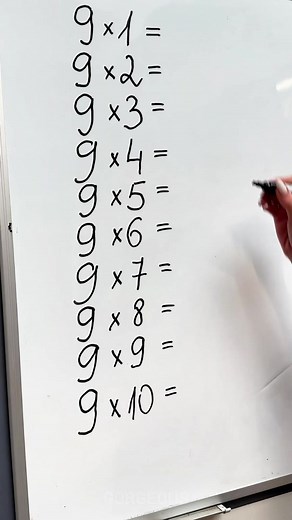 9 × 1 =
9 × 2 =
9 × 3 =
9 × 4 =
9 × 5 =
9 × 6 =
9 × 7 =
9 × 8 =
9 × 9 =
9 × 10 =